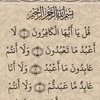 بِسْمِ اللَّهِ الرَّحْمَنِ الرَّحِيمِ
قُلْ يَا أَيُّهَا الْكَافِرُونَ ۝ لَا
أَعْبُدُ مَا تَعْبُدُونَ ۝ وَلَا أَنْتُمْ
عَابِدُونَ مَا أَعْبُدُ ۝ وَلَا أَنَا
عَابِدٌ مَا عَبَدْتُمْ ۝ وَلَا أَنْتُمْ